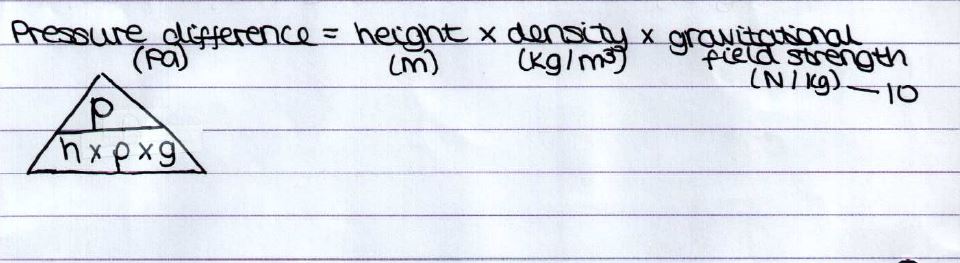 Pressure difference = height x density x gravitational
field strength
(Pa) (m) (kg/m³) (N/kg) — 10
p
h x ρ x g